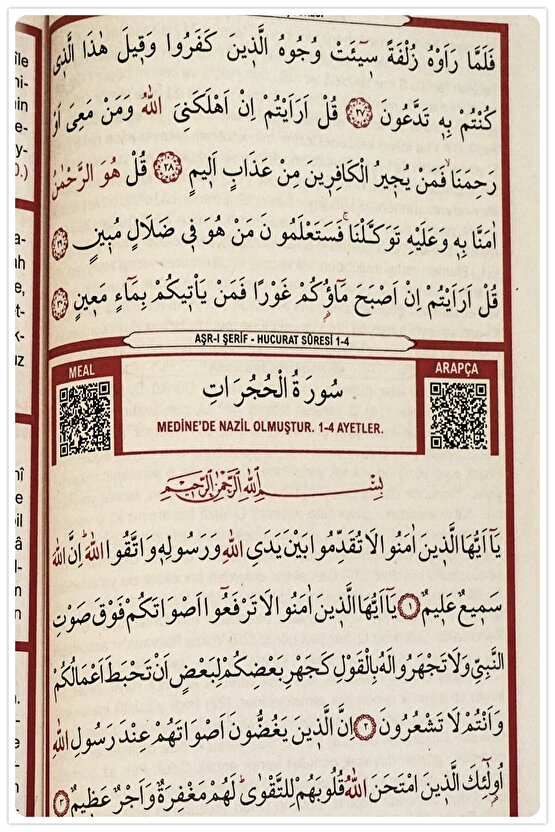 فَلَمَّا رَاَوْهُ زُلْفَةً سٓيـَٔتْ وُجُوهُ الَّذٖينَ كَفَرُوا وَقٖيلَ هٰذَا الَّذٖى
كُنْتُمْ بِهٖ تَدَّعُونَ ﴿٢٧﴾ قُلْ اَرَاَيْتُمْ اِنْ اَهْلَكَنِىَ اللّٰهُ وَمَنْ مَعِىَ اَوْ
رَحِمَنَاۙ فَمَنْ يُجٖيرُ الْكَافِرٖينَ مِنْ عَذَابٍ اَلٖيمٍ ﴿٢٨﴾ قُلْ هُوَ الرَّحْمٰنُ
اٰمَنَّا بِهٖ وَعَلَيْهِ تَوَكَّلْنَاۚ فَسَتَعْلَمُونَ مَنْ هُوَ فٖى ضَلَالٍ مُبٖينٍ ﴿٢٩﴾
قُلْ اَرَاَيْتُمْ اِنْ اَصْبَحَ مَٓاؤُكُمْ غَوْرًا فَمَنْ يَاْتٖيكُمْ بِمَٓاءٍ مَعٖينٍ ﴿٣٠﴾
AŞR-I ŞERİF - HUCURAT SÛRESİ 1-4
MEAL
ARAPÇA
سُورَةُ الْحُجُرَاتِ
MEDİNE'DE NAZİL OLMUŞTUR. 1-4 AYETLER.
بِسْمِ اللّٰهِ الرَّحْمٰنِ الرَّحٖيمِ
يَٓا اَيُّهَا الَّذٖينَ اٰمَنُوا لَا تُقَدِّمُوا بَيْنَ يَدَىِ اللّٰهِ وَرَسُولِهٖ وَاتَّقُوا اللّٰهَۜ اِنَّ اللّٰهَ
سَمٖيعٌ عَلٖيمٌ ﴿١﴾ يَٓا اَيُّهَا الَّذٖينَ اٰمَنُوا لَا تَرْفَعُٓوا اَصْوَاتَكُمْ فَوْقَ صَوْتِ
النَّبِىِّ وَلَا تَجْهَرُوا لَهُ بِالْقَوْلِ كَجَهْرِ بَعْضِكُمْ لِبَعْضٍ اَنْ تَحْبَطَ اَعْمَالُكُمْ
وَاَنْتُمْ لَا تَشْعُرُونَ ﴿٢﴾ اِنَّ الَّذٖينَ يَغُضُّونَ اَصْوَاتَهُمْ عِنْدَ رَسُولِ اللّٰهِ
اُو۬لٰٓئِكَ الَّذٖينَ امْتَحَنَ اللّٰهُ قُلُوبَهُمْ لِلتَّقْوٰىۜ لَهُمْ مَغْفِرَةٌ وَاَجْرٌ عَظٖيمٌ ﴿٣﴾